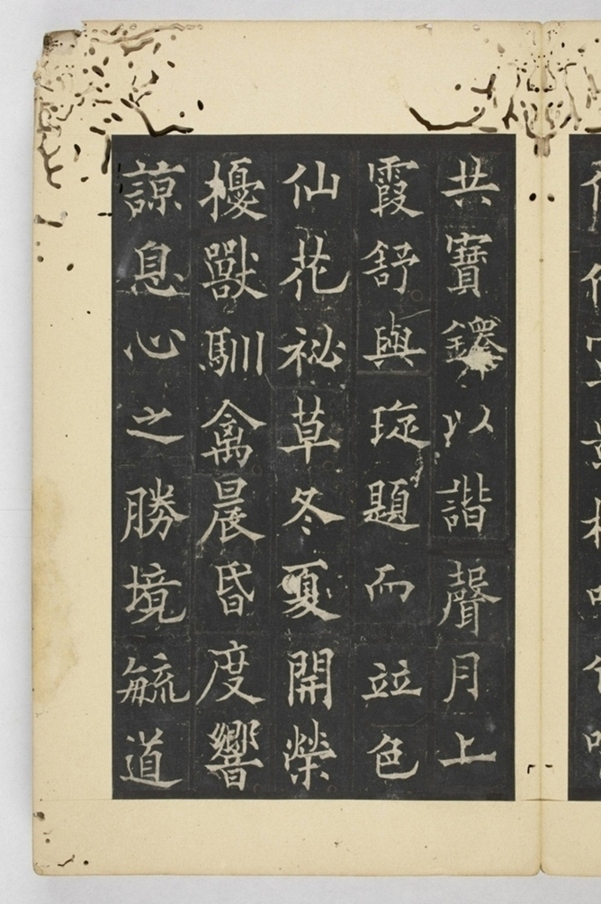 共寶鐸以諧聲月上
霞舒與琁題而竝色
仙花祕草冬夏開榮
擾獸馴禽晨昏度響
諒息心之勝境毓道